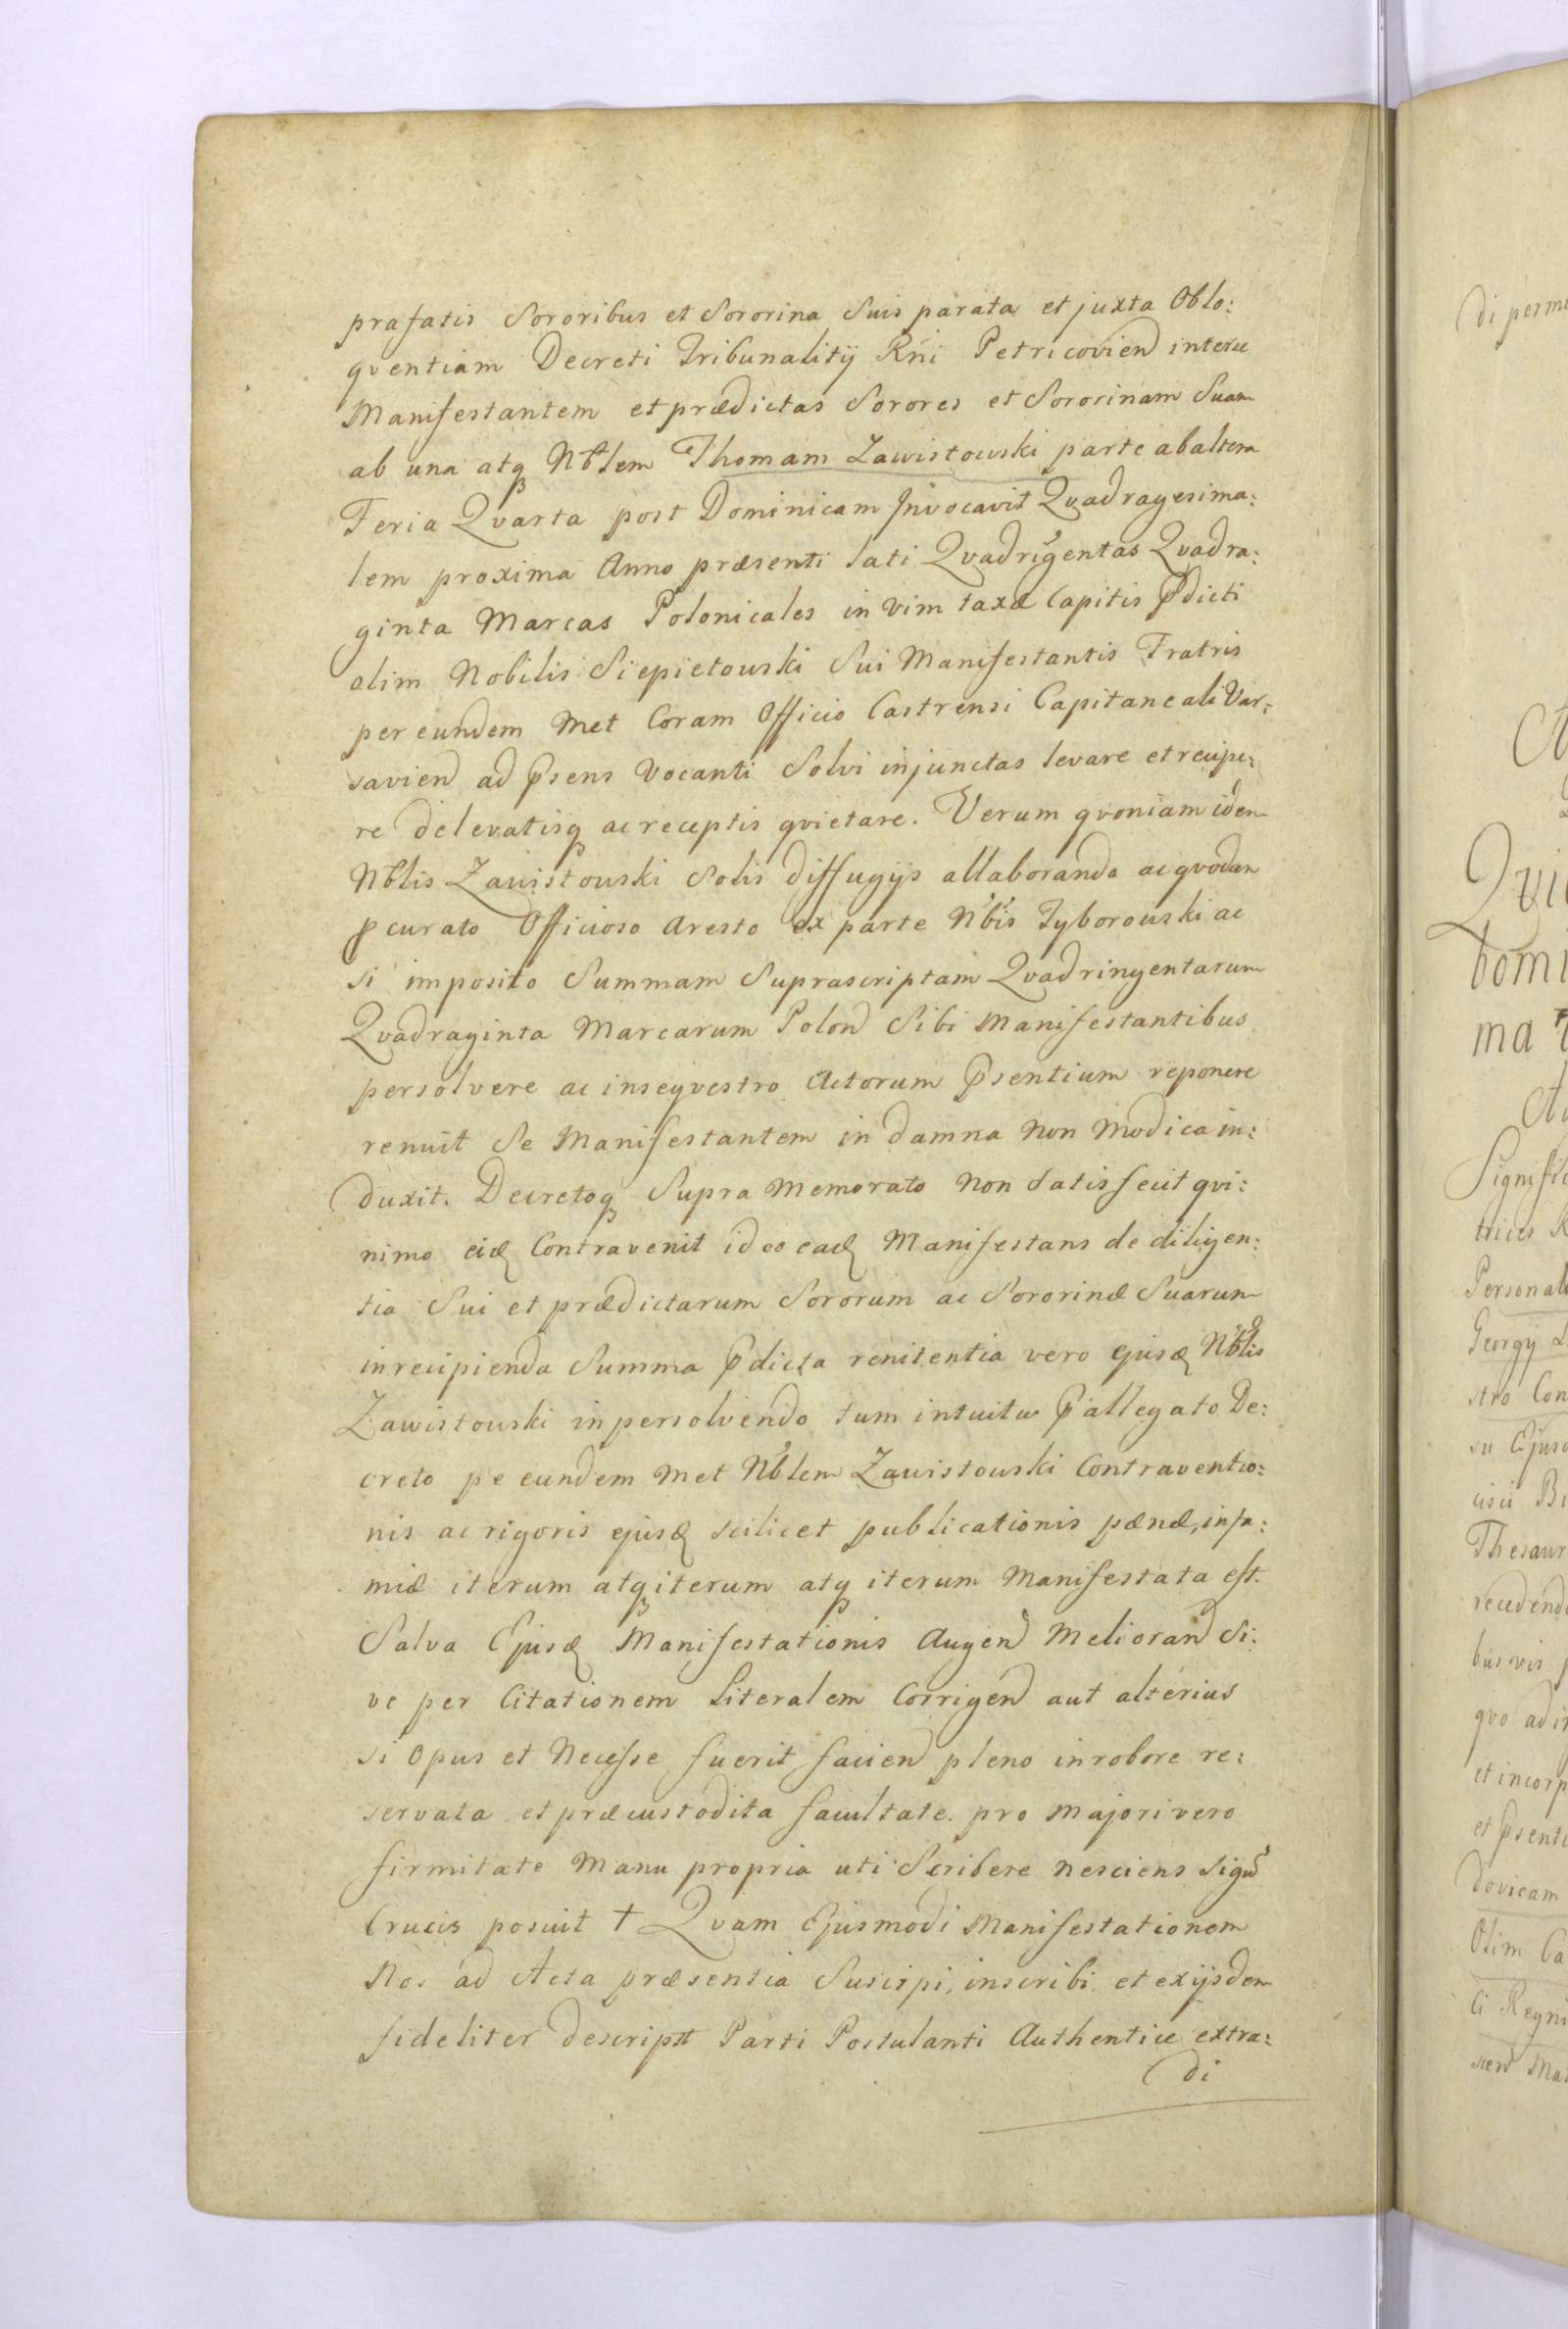 prafatis Sororibus et Sororina Suis parata et juxta Oblo:
qventiam Decreti Tribunalitij Rni Petricovien inter se
Manifestantem et prædictas Sorores et Sororinam Suam
ab una atq Nblem Thomam Zawistowski parte ab altera
Feria Qvarta post Dominicam Invocavit Qvadragesima:
lem proxima Anno præsenti lati Qvadrigentas Qvadra:
ginta Marcas Polonicales in vim taxæ Capitis pdicti
olim Nobilis Siepietowski Sui Manifestantis Fratris
per eundem Met Coram Officio Castrensi Capitaneali Var:
savien ad psens vocanti Solvi injunctas levare et recipe:
re delevatisq ac receptis qvietare. Verum qvoniam idem
Nblis Zawistowski Solis diffugijs allaborando ac qvodam
pcurato Officioso Aresto ex parte Nbis Tyborowski ac
si imposito Summam Suprascriptam Qvadringentarum
Qvadraginta Marcarum Polon Sibi Manifestantibus
persolvere ac in seqvestro Actorum psentium reponere
renuit Se Manifestantem in damna non modica in:
duxit. Decretoq Supra Memorato non satis fecit qvi:
nimo eid Contravenit ideo ead Manifestans de diligen:
tia Sui et prædictarum Sororum ac Sororinæ Suarum
in recipienda Summa pdicta renitentia vero ejusd Nblis
Zawistowski in persolvendo tum intuitu pallegato De:
creto pe eundem Met Nblem Zawistowski Contraventio:
nis ac rigoris ejusd scilicet publicationis pænæ, infa:
miæ iterum atq iterum atq iterum Manifestata est.
Salva Ejusd Manifestationis Augen Melioran Si:
ve per Citationem Literalem Corrigen aut alterius
si opus et Necesse fuerit facien pleno in robore re:
servata et præcustodita facultate. pro Majori vero
firmitate Manu propria uti Scribere nesciens Signu
Crucis posuit † Qvam Ejusmodi Manifestationem
Nos ad Acta præsentia Suscipi, inscribi et ex ijsdem
fideliter descript Parti Postulanti Authentice extra:
di